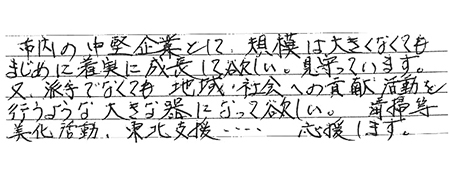 市内の中堅企業として、規模は大きくなくても
まじめに着実に成長して欲しい。見守っています。
又、派手でなくても地域・社会への貢献活動を
行うような大きな器になって欲しい。 清掃等
美化活動、東北支援‥‥ 応援します。